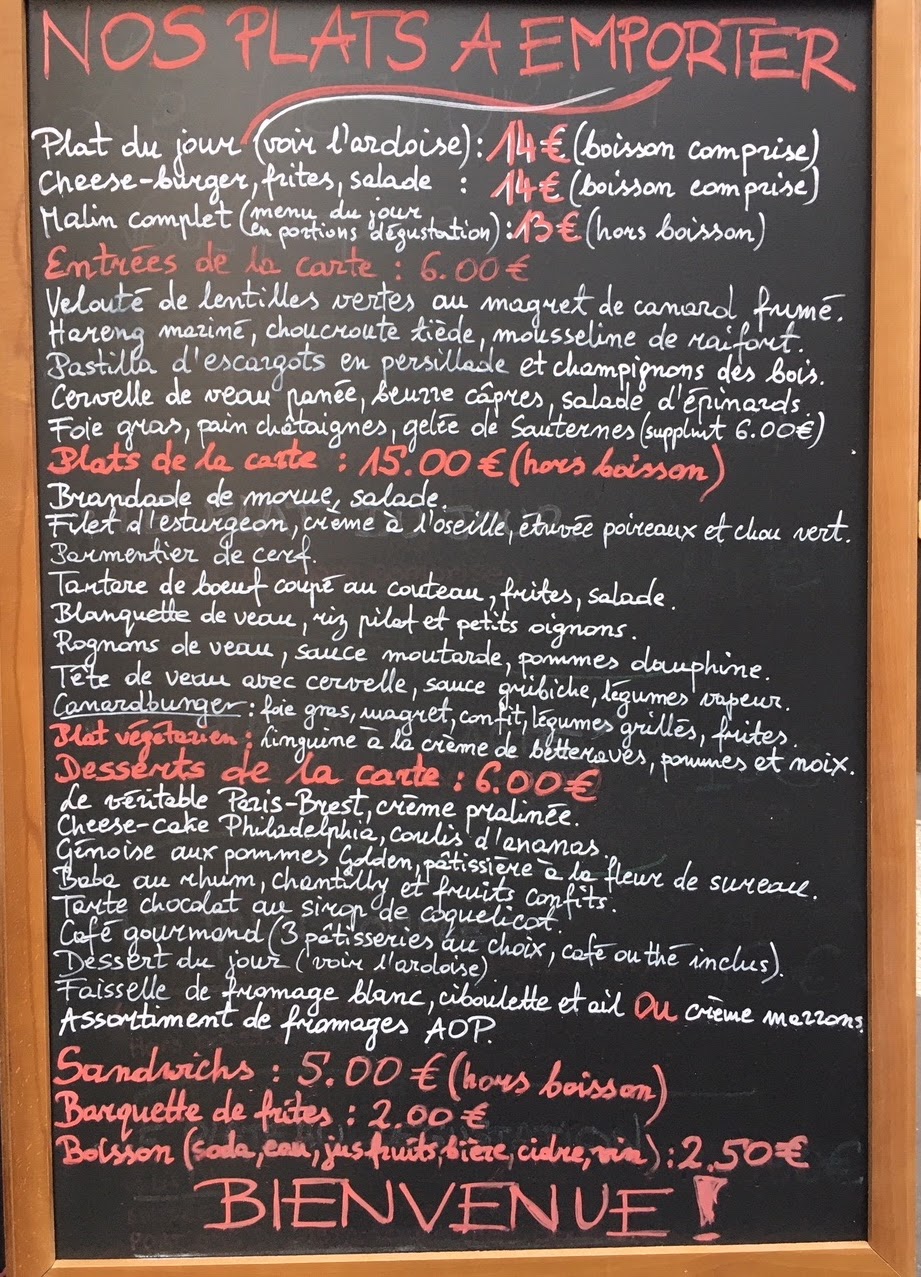 NOS PLATS A EMPORTER
Plat du jour (voir l'ardoise) : 14€ (boisson comprise)
Cheese-burger, frites, salade : 14€ (boisson comprise)
Malin complet (menu du jour en portions dégustation) : 13€ (hors boisson)
Entrées de la carte : 6.00€
Velouté de lentilles vertes au magret de canard fumé.
Hareng mariné, choucroute tiède, mousseline de raifort.
Pastilla d'escargots en persillade et champignons des bois.
Cervelle de veau panée, beurre câpres, salade d'épinards.
Foie gras, pain châtaignes, gelée de Sauternes (supplmt 6.00€)
Plats de la carte : 15.00€ (hors boisson)
Brandade de morue, salade.
Filet d'esturgeon, crème à l'oseille, étuvée poireaux et chou vert.
Parmentier de cerf.
Tartare de boeuf coupé au couteau, frites, salade.
Blanquette de veau, riz pilaf et petits oignons.
Rognons de veau, sauce moutarde, pommes dauphine.
Tête de veau avec cervelle, sauce gribiche, légumes vapeur.
Canardburger : foie gras, magret, confit, légumes grillés, frites.
Plat végétarien : linguine à la crème de betteraves, pommes et noix.
Desserts de la carte : 6.00€
Le véritable Paris-Brest, crème pralinée.
Cheese-cake Philadelphia, coulis d'ananas.
Génoise aux pommes Golden, pâtissière à la fleur de sureau.
Baba au rhum, chantilly et fruits confits.
Tarte chocolat au sirop de coquelicot.
Café gourmand (3 pâtisseries au choix, café ou thé inclus).
Dessert du jour (voir l'ardoise)
Faisselle de fromage blanc, ciboulette et ail OU crème marrons.
Assortiment de fromages AOP.
Sandwichs : 5.00€ (hors boisson)
Barquette de frites : 2.00€
Boisson (soda, eau, jus fruits, bière, cidre, vin) : 2.50€
BIENVENUE !